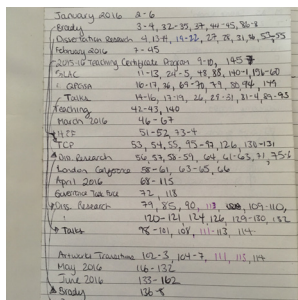 January 2016 2-6
Brady 3-9, 32-35, 37, 44-45, 86-8
Dissertation Research 4, 13-14, 19-22, 27, 28, 31, 36, 53, 55
February 2016 7-45
2015-16 Teaching Certificate Program 9-10, 145
SLAC 11-13, 24-5, 48, 88, 140-1, 156-60
16-17, 36, 69-70, 79, 80, 94, 149
Talks 14-16, 17-19, 26, 29-31, 81-4, 89-93
Teaching 42-43, 140
March 2016 46-67
51-52, 73-4
TCP 53, 54, 55, 95-97, 126, 130-131
Diss. Research 56, 57, 58-59, 64, 61-63, 71, 75-6
London Conference 58-61, 63-65, 66
April 2016 68-115
72, 113
Diss. Research 79, 85, 90, 113, 109-110,
120-121, 124, 126, 129-130, 132
Talks 98-101, 108, 111-113, 114
Artworks Transitions 102-3, 104-7, 111, 113, 114
May 2016 116-132
June 2016 133-162
Brady 136-8